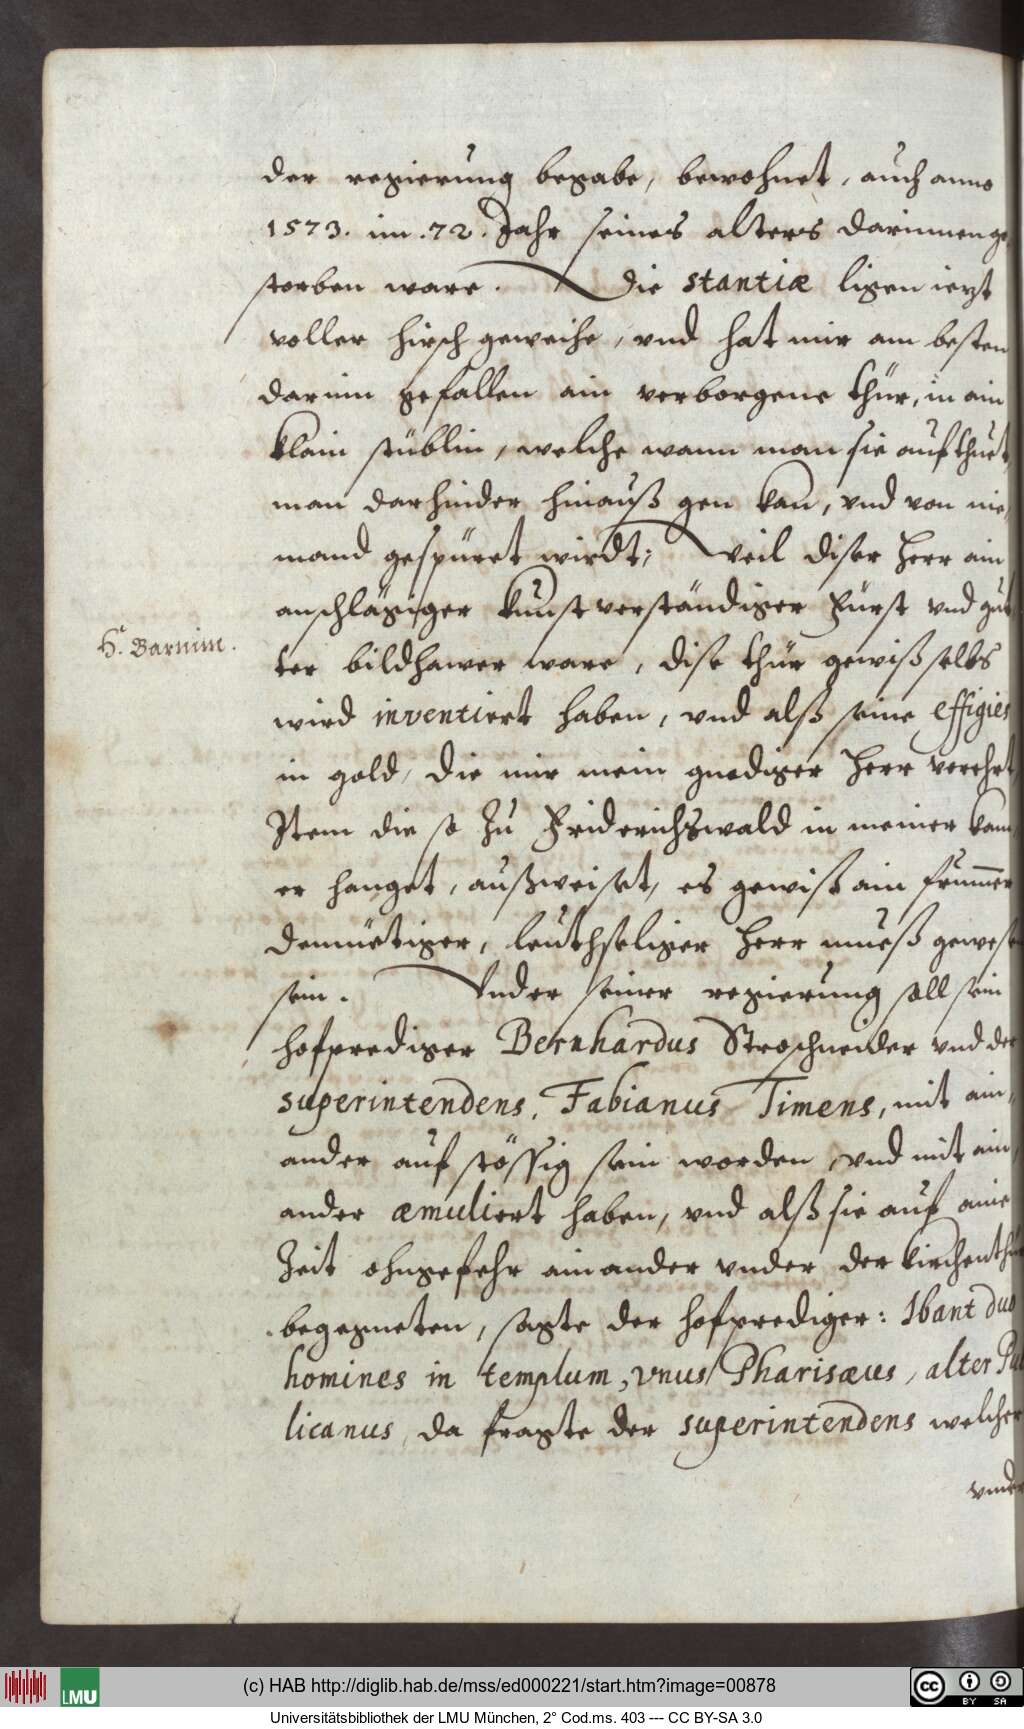 der regierung begabe, bewohnet, auch anno
1573. im .72. Jahr seines alters darinnen ge
storben ware. Die stantiæ ligen iezt
voller hirsch geweihe, vnd hat mir am besten
darinn gefallen ain verborgene thür, in ain
klain stüblin, welche wann man sie aufthuet,
man darhinder hinauß gen kan, vnd von nie,
mand gespüret wirdt; Weil diser Herr ain
anschlägiger kunstverständiger Fürst vnd gu
H. Barnim.
ter bildhawer ware, dise thür gewiß selbs
wird inventiert haben, vnd alß seine effigies
in gold, die mir mein gnediger Herr verehrt
Item die so zu Friderichswald in meiner kam
er hanget, außweiset, es gewiß ain frummer
demüetiger, leuthseliger Herr mueß gewese
sein. Vnder seiner regierung soll sein
hofprediger Bernhardus Stroschneider vnd der
superintendens, Fabianus Timens, mit ain,
ander aufstössig sein worden, vnd mit ain
ander æmuliert haben, vnd alß sie auf aine
Zeit ohngefehr ainander vnder der kirchenthü
begegneten, sagte der hofprediger: Ibant duo
homines in templum, vnus Pharisæus, alter Pub
licanus, da fragte der superintendens welcher
vnder
(c) HAB http://diglib.hab.de/mss/ed000221/start.htm?image=00878
LMU
cc BY SA
Universitätsbibliothek der LMU München, 2° Cod.ms. 403 --- CC BY-SA 3.0